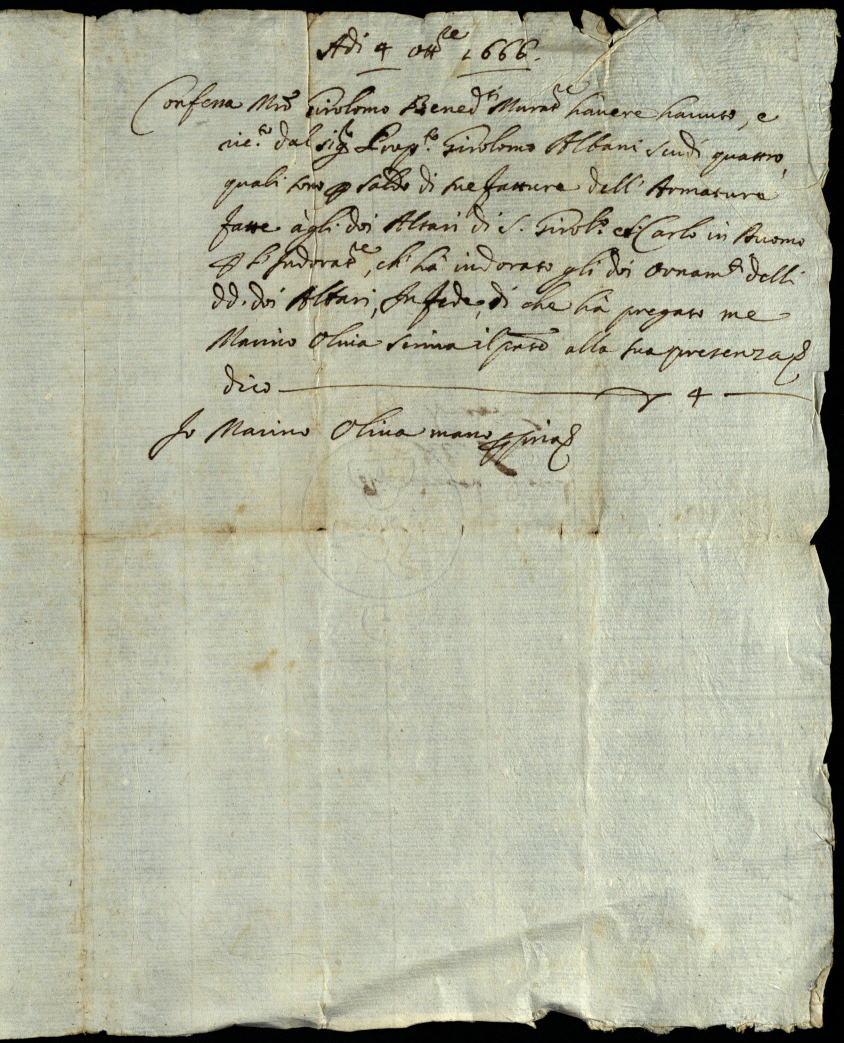 Adi 4 ott.re 1666.
Confessa Mro Girolomo Bened.ti Murat.e havere havuto, e
ric.to dal sig.r Prep.to Girolomo Albani scudi quattro,
quali sono p saldo di sue fatture dell'Armature
fatte àgli doi Altari di S. Girol.o et S. Carlo in Duomo
p l'Indorat.e, ch'hà indorato gli doi ornam.ti delli
dd. doi Altari, In fede, di che hà pregato me
Marino Oliva scriva il pnte alla sua presenza
dico 4
Io Marino Oliva mano ppria